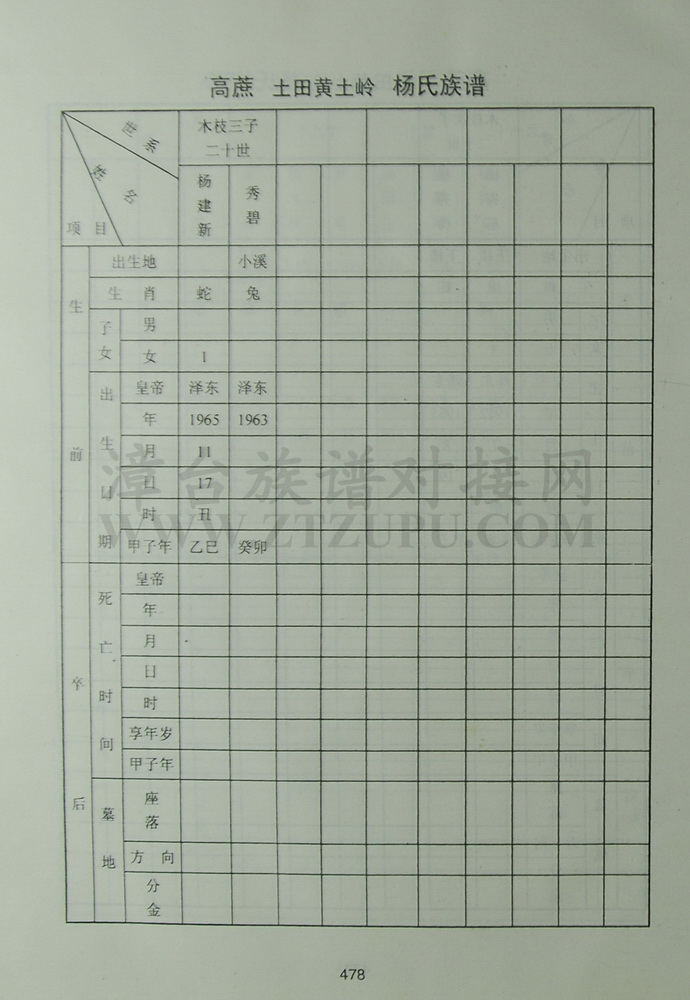 高蔗 土田黄土岭 杨氏族谱
世系 木枝三子
二十世
姓名
项目 杨建新 秀碧
生前
出生地 小溪
生肖 蛇 兔
子女 男
女 1
出生日期 皇帝 泽东 泽东
年 1965 1963
月 11
日 17
时 丑
甲子年 乙巳 癸卯
漳台族谱对接网
WWW.ZTZUPU.COM
卒后
死亡时间 皇帝
年
月
日
时
享年岁
甲子年
墓地 座落
方向
分金
478